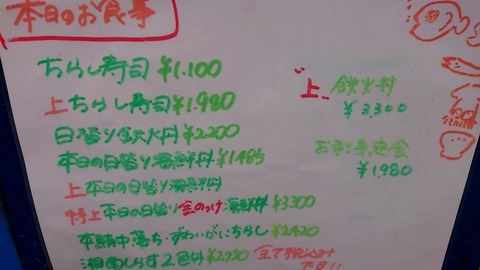 本日のお食事
ちらし寿司 ¥1,100
上ちらし寿司 ¥1,980
日替り鉄火丼 ¥2,200
本日の日替り海鮮丼 ¥1,485
上本日の日替り海鮮丼
特上本日の日替り全のっけ海鮮丼 ¥3,300
本鮪中落ち・ずわいがにちらし ¥2,420
湘南しらす2色丼
全て税込
"上" 鉄火丼
¥3,300
お刺身定食
¥1,980